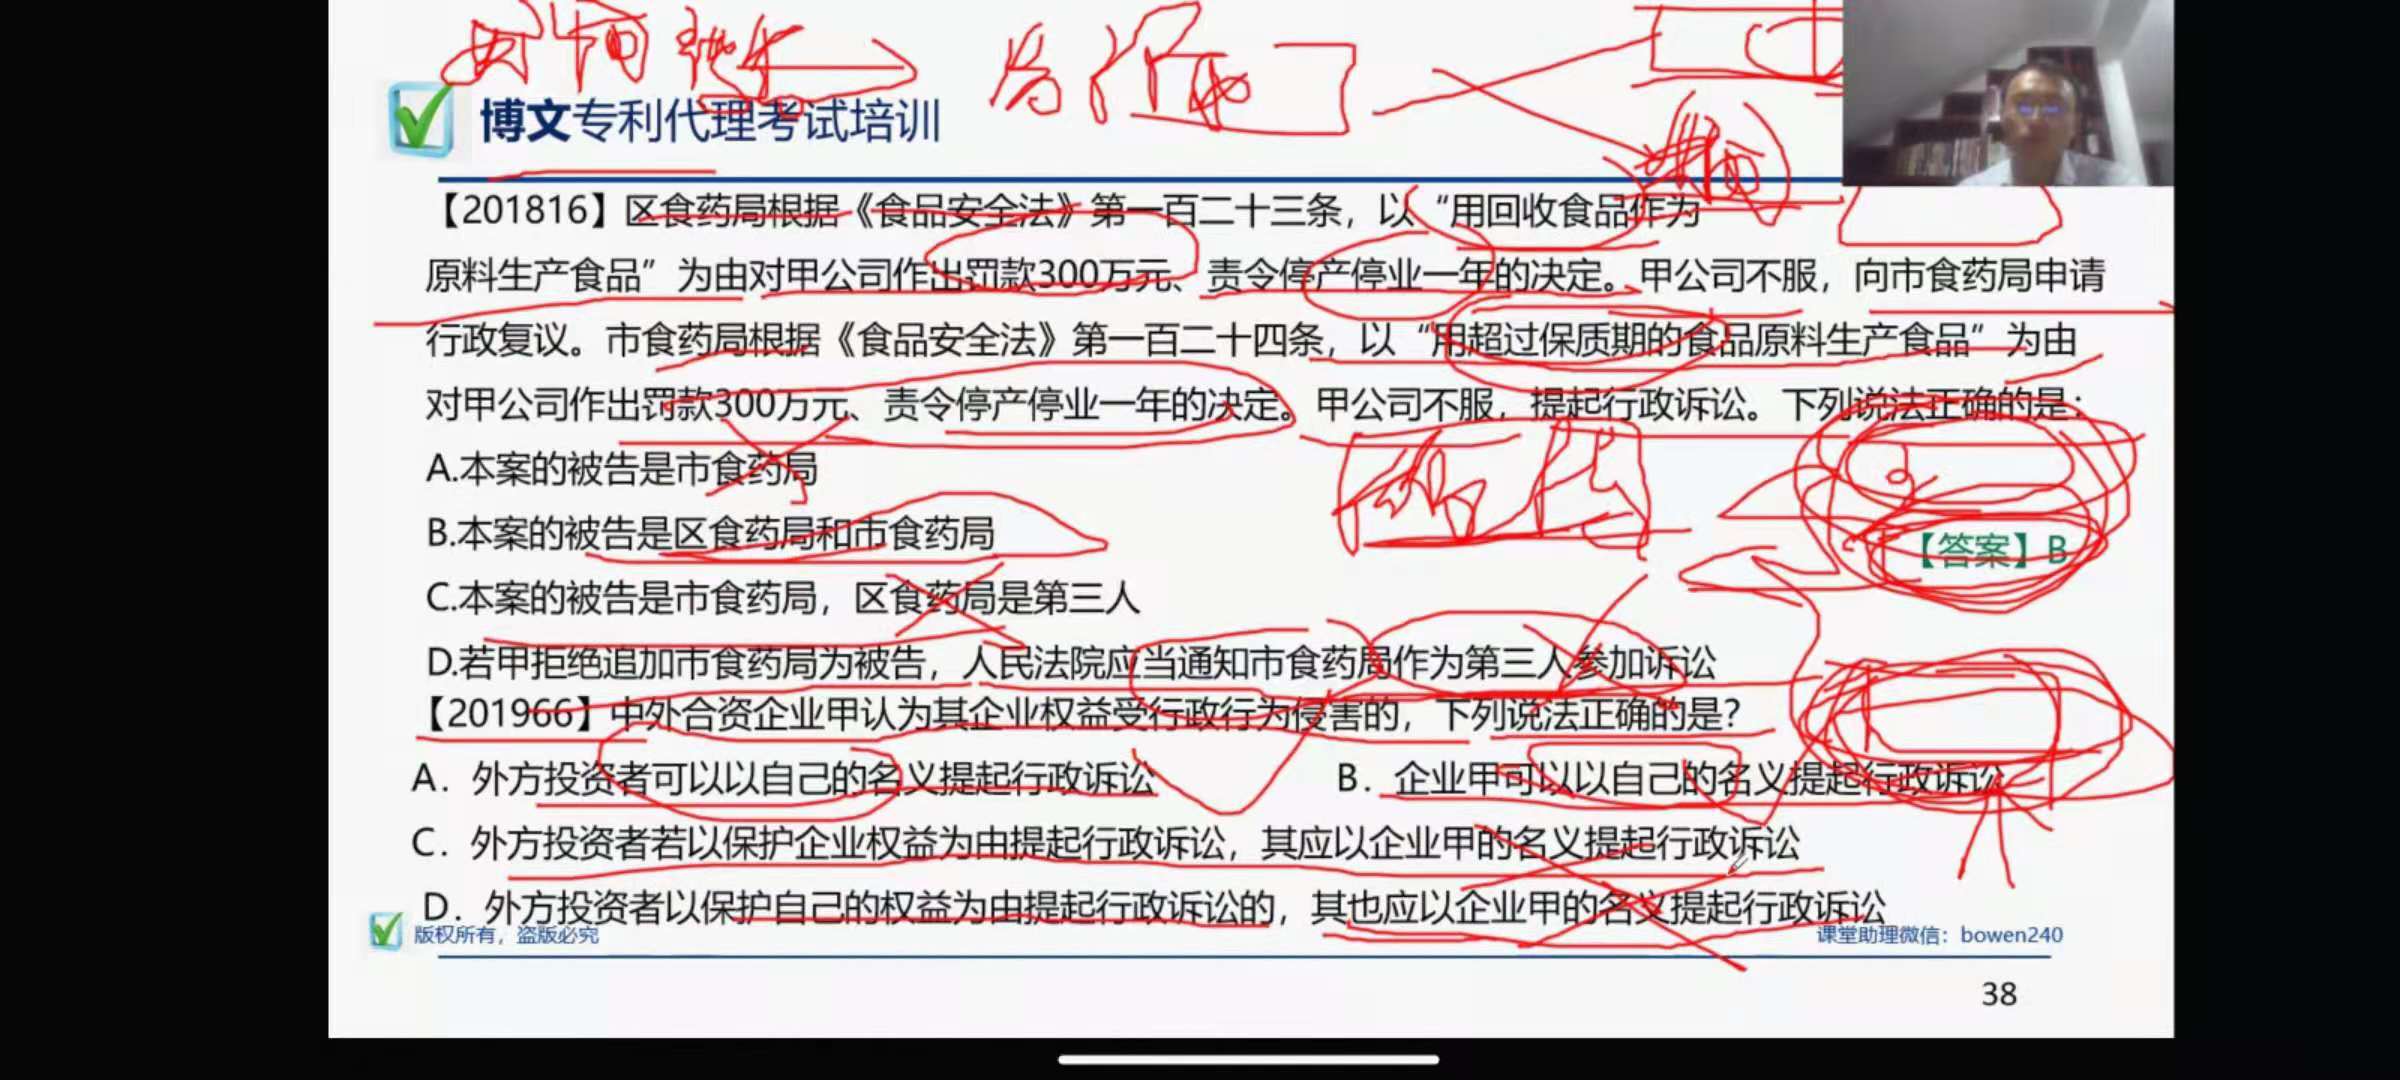 博文专利代理考试培训
【201816】区食药局根据《食品安全法》第一百二十三条，以“用回收食品作为
原料生产食品”为由对甲公司作出罚款300万元、责令停产停业一年的决定。甲公司不服，向市食药局申请
行政复议。市食药局根据《食品安全法》第一百二十四条，以“用超过保质期的食品原料生产食品”为由
对甲公司作出罚款300万元、责令停产停业一年的决定。甲公司不服，提起行政诉讼。下列说法正确的是：
A.本案的被告是市食药局
B.本案的被告是区食药局和市食药局
【答案】B
C.本案的被告是市食药局，区食药局是第三人
D.若甲拒绝追加市食药局为被告，人民法院应当通知市食药局作为第三人参加诉讼
【201966】中外合资企业甲认为其企业权益受行政行为侵害的，下列说法正确的是？
A．外方投资者可以以自己的名义提起行政诉讼 B．企业甲可以以自己的名义提起行政诉讼
C．外方投资者若以保护企业权益为由提起行政诉讼，其应以企业甲的名义提起行政诉讼
D．外方投资者以保护自己的权益为由提起行政诉讼的，其也应以企业甲的名义提起行政诉讼
版权所有，盗版必究 课堂助理微信：bowen240
38